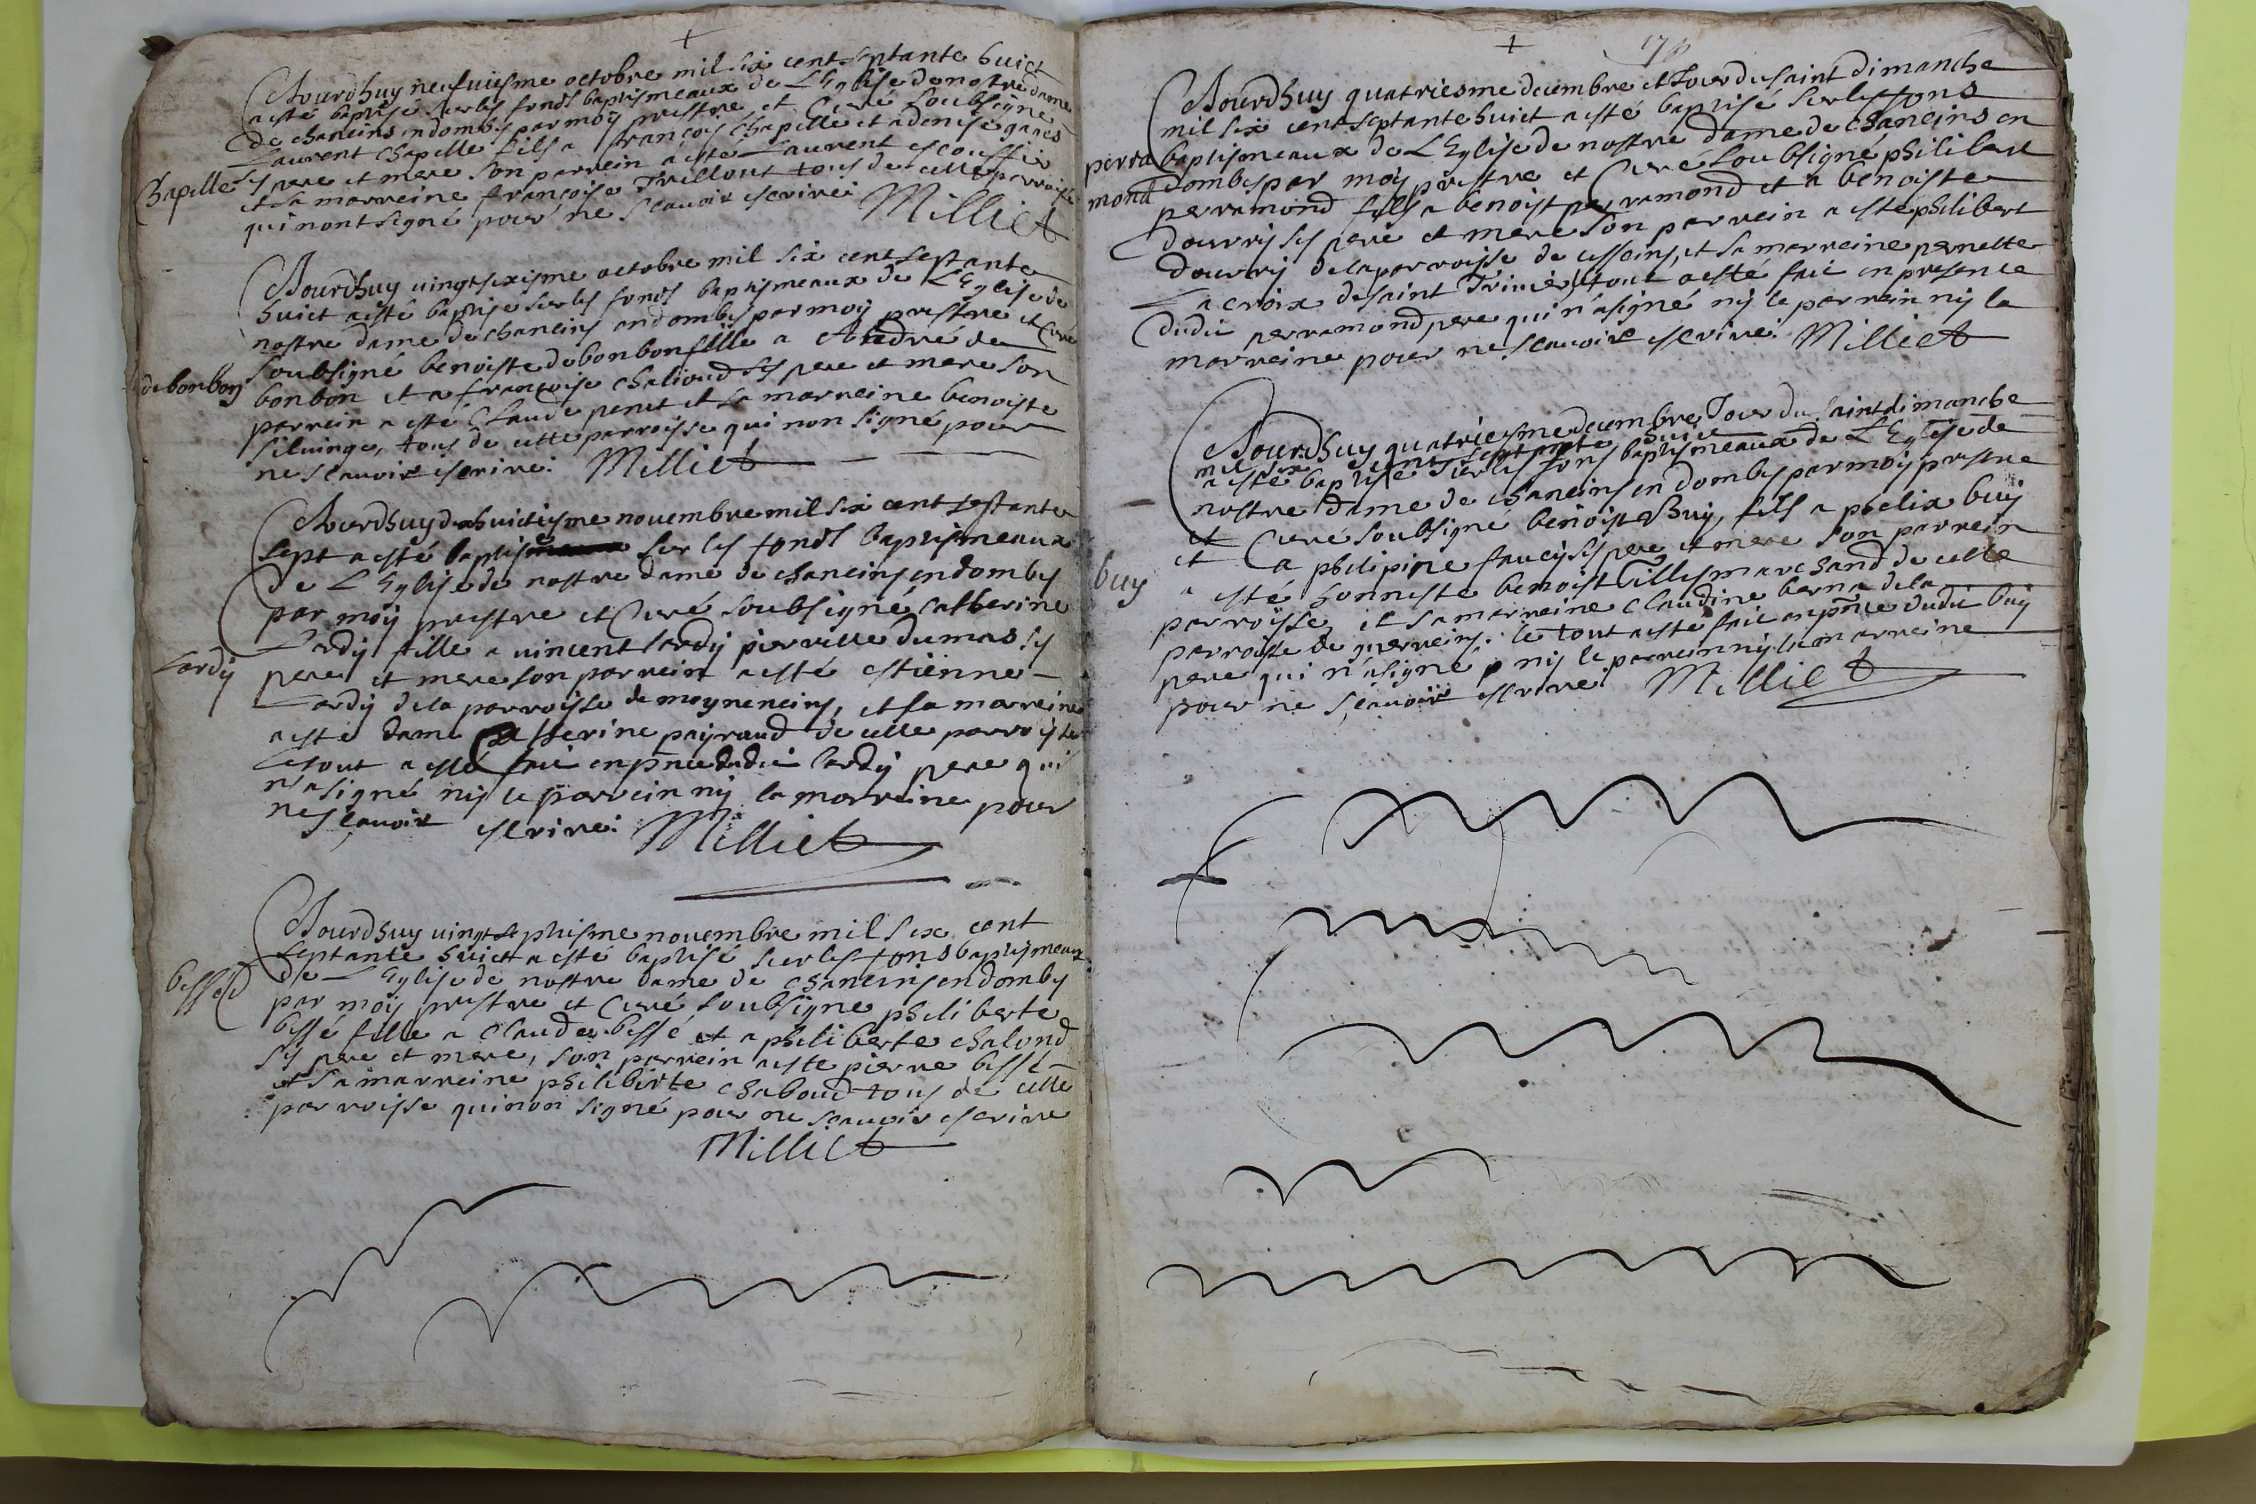 Aourdhuy neufuiesme octobre mil six cent septante huict
a esté baptisé sur les fonds baptismeaux de L'Eglise de nostre dame
de chaneins en dombes par moy prestre et Curé soubsigné
Laurent Chapelle fils a françois Chapelle et a denise
ses pere et mere son parrein a esté Laurent escoffier
Chapelle
et sa marreine françoise Trillout tous de cette parroisse
qui n'ont signé pour ne sçauoir escrire.
Milliet
Aourdhuy uingtsixisme octobre mil six cent septante
huict a esté baptise sur les fonds baptismeaux de L'Eglise de
nostre dame de chaneins en dombes par moy prestre et Curé
soubsigné benoiste debonbon fille a André de
debonbon
bonbon et a françoise chalioud ses pere et mere son
parrein a esté Claude penet et sa marreine benoiste
siluinge, tous de cette parroisse qui non signé pour
ne sçauoir escrire. Milliet
Aourdhuy dixhuictiesme nouembre mil six cent septante
sept a esté baptis sur les fonds baptismeaux
de L'Eglise de nostre dame de chaneins en dombes
par moy prestre et Curé soubsigné Catherine
Lardy fille a uincent lardy pierrette dumas ses
Lardy
pere et mere son parrein a esté estienne
Lardy de la parroisse de mogneneins, et la marreine
a esté dame Catherine payraud de cette parroisse
Le tout a esté faict en pnce dudit lardy pere qui
n'a signé ny le parrein ny la marreine pour
ne sçauoir escrire. Milliet
Aourdhuy uingt septuisme nouembre mil six cent
septante huict a esté baptisé sur les fons baptismeaux
bessed
de L'Eglise de nostre dame de chaneins en dombes
par moy prestre et Curé soubsigné philiberte
bessé fille a Claude bessé et a philiberte chalond
ses pere et mere, son parrein a esté pierre bessé
et sa marreine philiberte chaboud tous de cette
parroisse qui non signé pour ne sçauoir escrire
Milliet
Aourdhuy quatriesme decembre et Jour du saint dimanche
mil six cent septante huict a esté baptisé sur les fons
perra
baptismeaux de L'Eglise de nostre dame de chaneins en
mond
dombes par moy prestre et Curé soubsigné philibert
perramond fils a benoist perramond et a benoiste
dourrij ses pere et mere son parrein a esté philibert
dourrij de la parroisse de cesseins, et sa marreine pernette
La croix de saint Triuier, Le tout a esté faict en presence
dudit perramond pere qui n'a signé ny le parrein ny la
marreine pour ne sçauoir escrire. Milliet
Aourdhuy quatriesme decembre Jour du saint dimanche
mil six cent septante huict
a esté baptisé sur les fons baptismeaux de L'Eglise de
nostre dame de chaneins en dombes par moy prestre
et Curé soubsigné benoist Buy, fils a phelix buy
et a philipine faucy ses pere et mere son parrein
buy
a esté honneste benoist Gilles marchand de cette
parroisse, et sa marreine Claudine berna de la
parroisse de guerreins. le tout a esté faict en pnce dudit buy
pere qui n'a signé ny le parrein ny la marreine
pour ne sçauoir escrire. Milliet